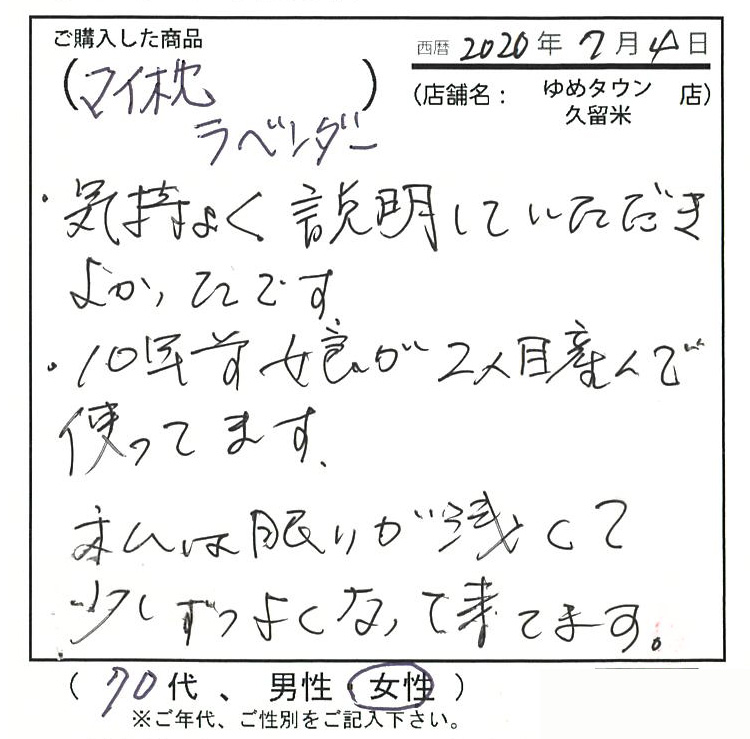 ご購入した商品
西暦 2020年 7月4日
(マイ枕
ラベンダー)
(店舗名: ゆめタウン
久留米 店)
・気持よく説明していただき
よかったです
・10年前娘が2人目産んで
使ってます、
私は眠りが浅くて
少しずつよくなって来てます。
(70代、男性・女性)
※ご年代、ご性別をご記入下さい。